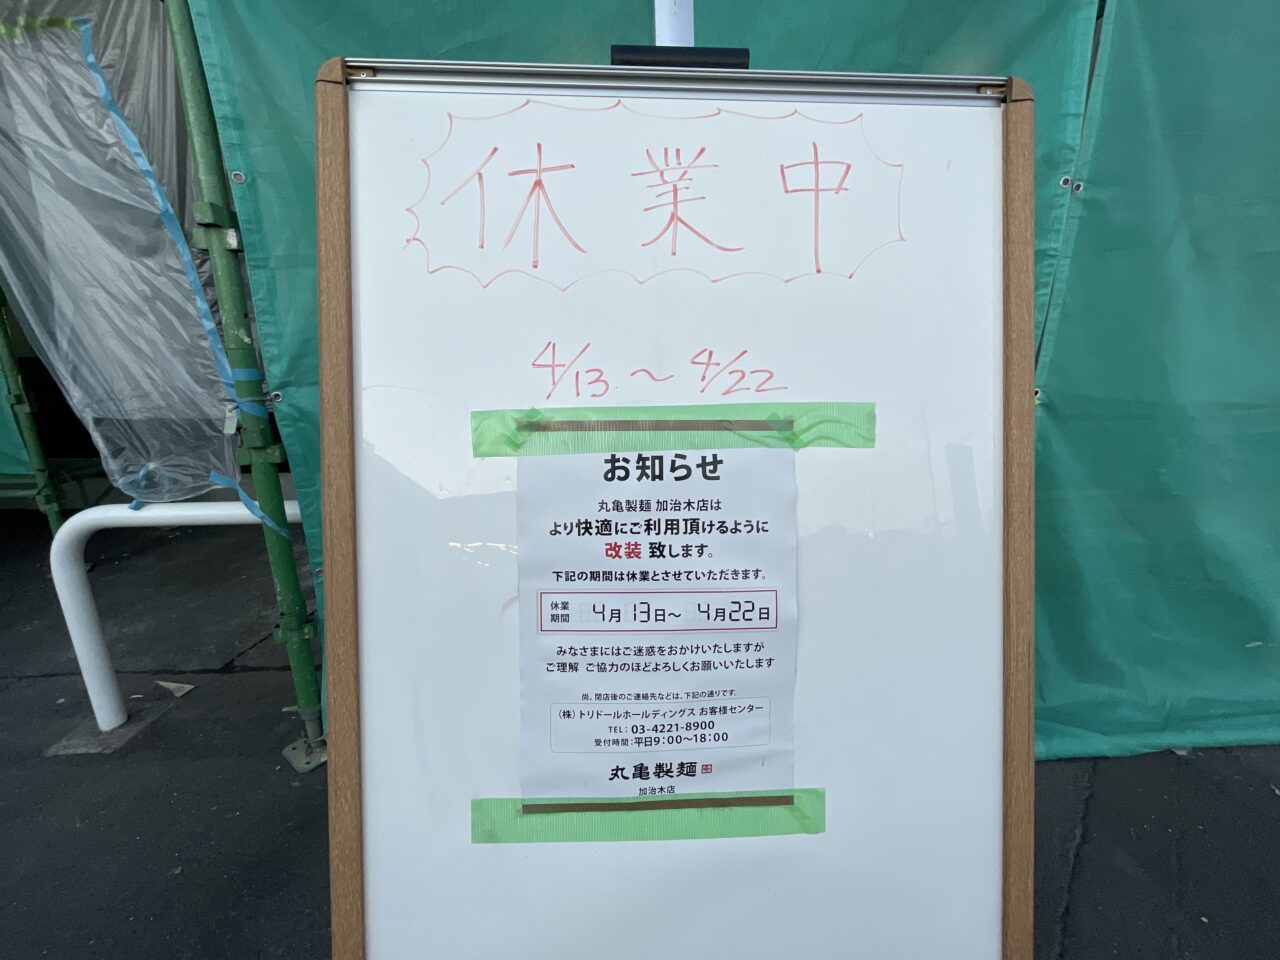 休業中
4/13～4/22
お知らせ
丸亀製麺 加治木店は
より快適にご利用頂けるように
改装 致します。
下記の期間は休業とさせていただきます。
休業
期間
4月13日～ 4月22日
みなさまにはご迷惑をおかけいたしますが
ご理解 ご協力のほどよろしくお願いいたします
尚、閉店後のご連絡先などは、下記の通りです。
（株）トリドールホールディングス お客様センター
TEL：03-4221-8900
受付時間：平日9：00～18：00
丸亀製麺
加治木店